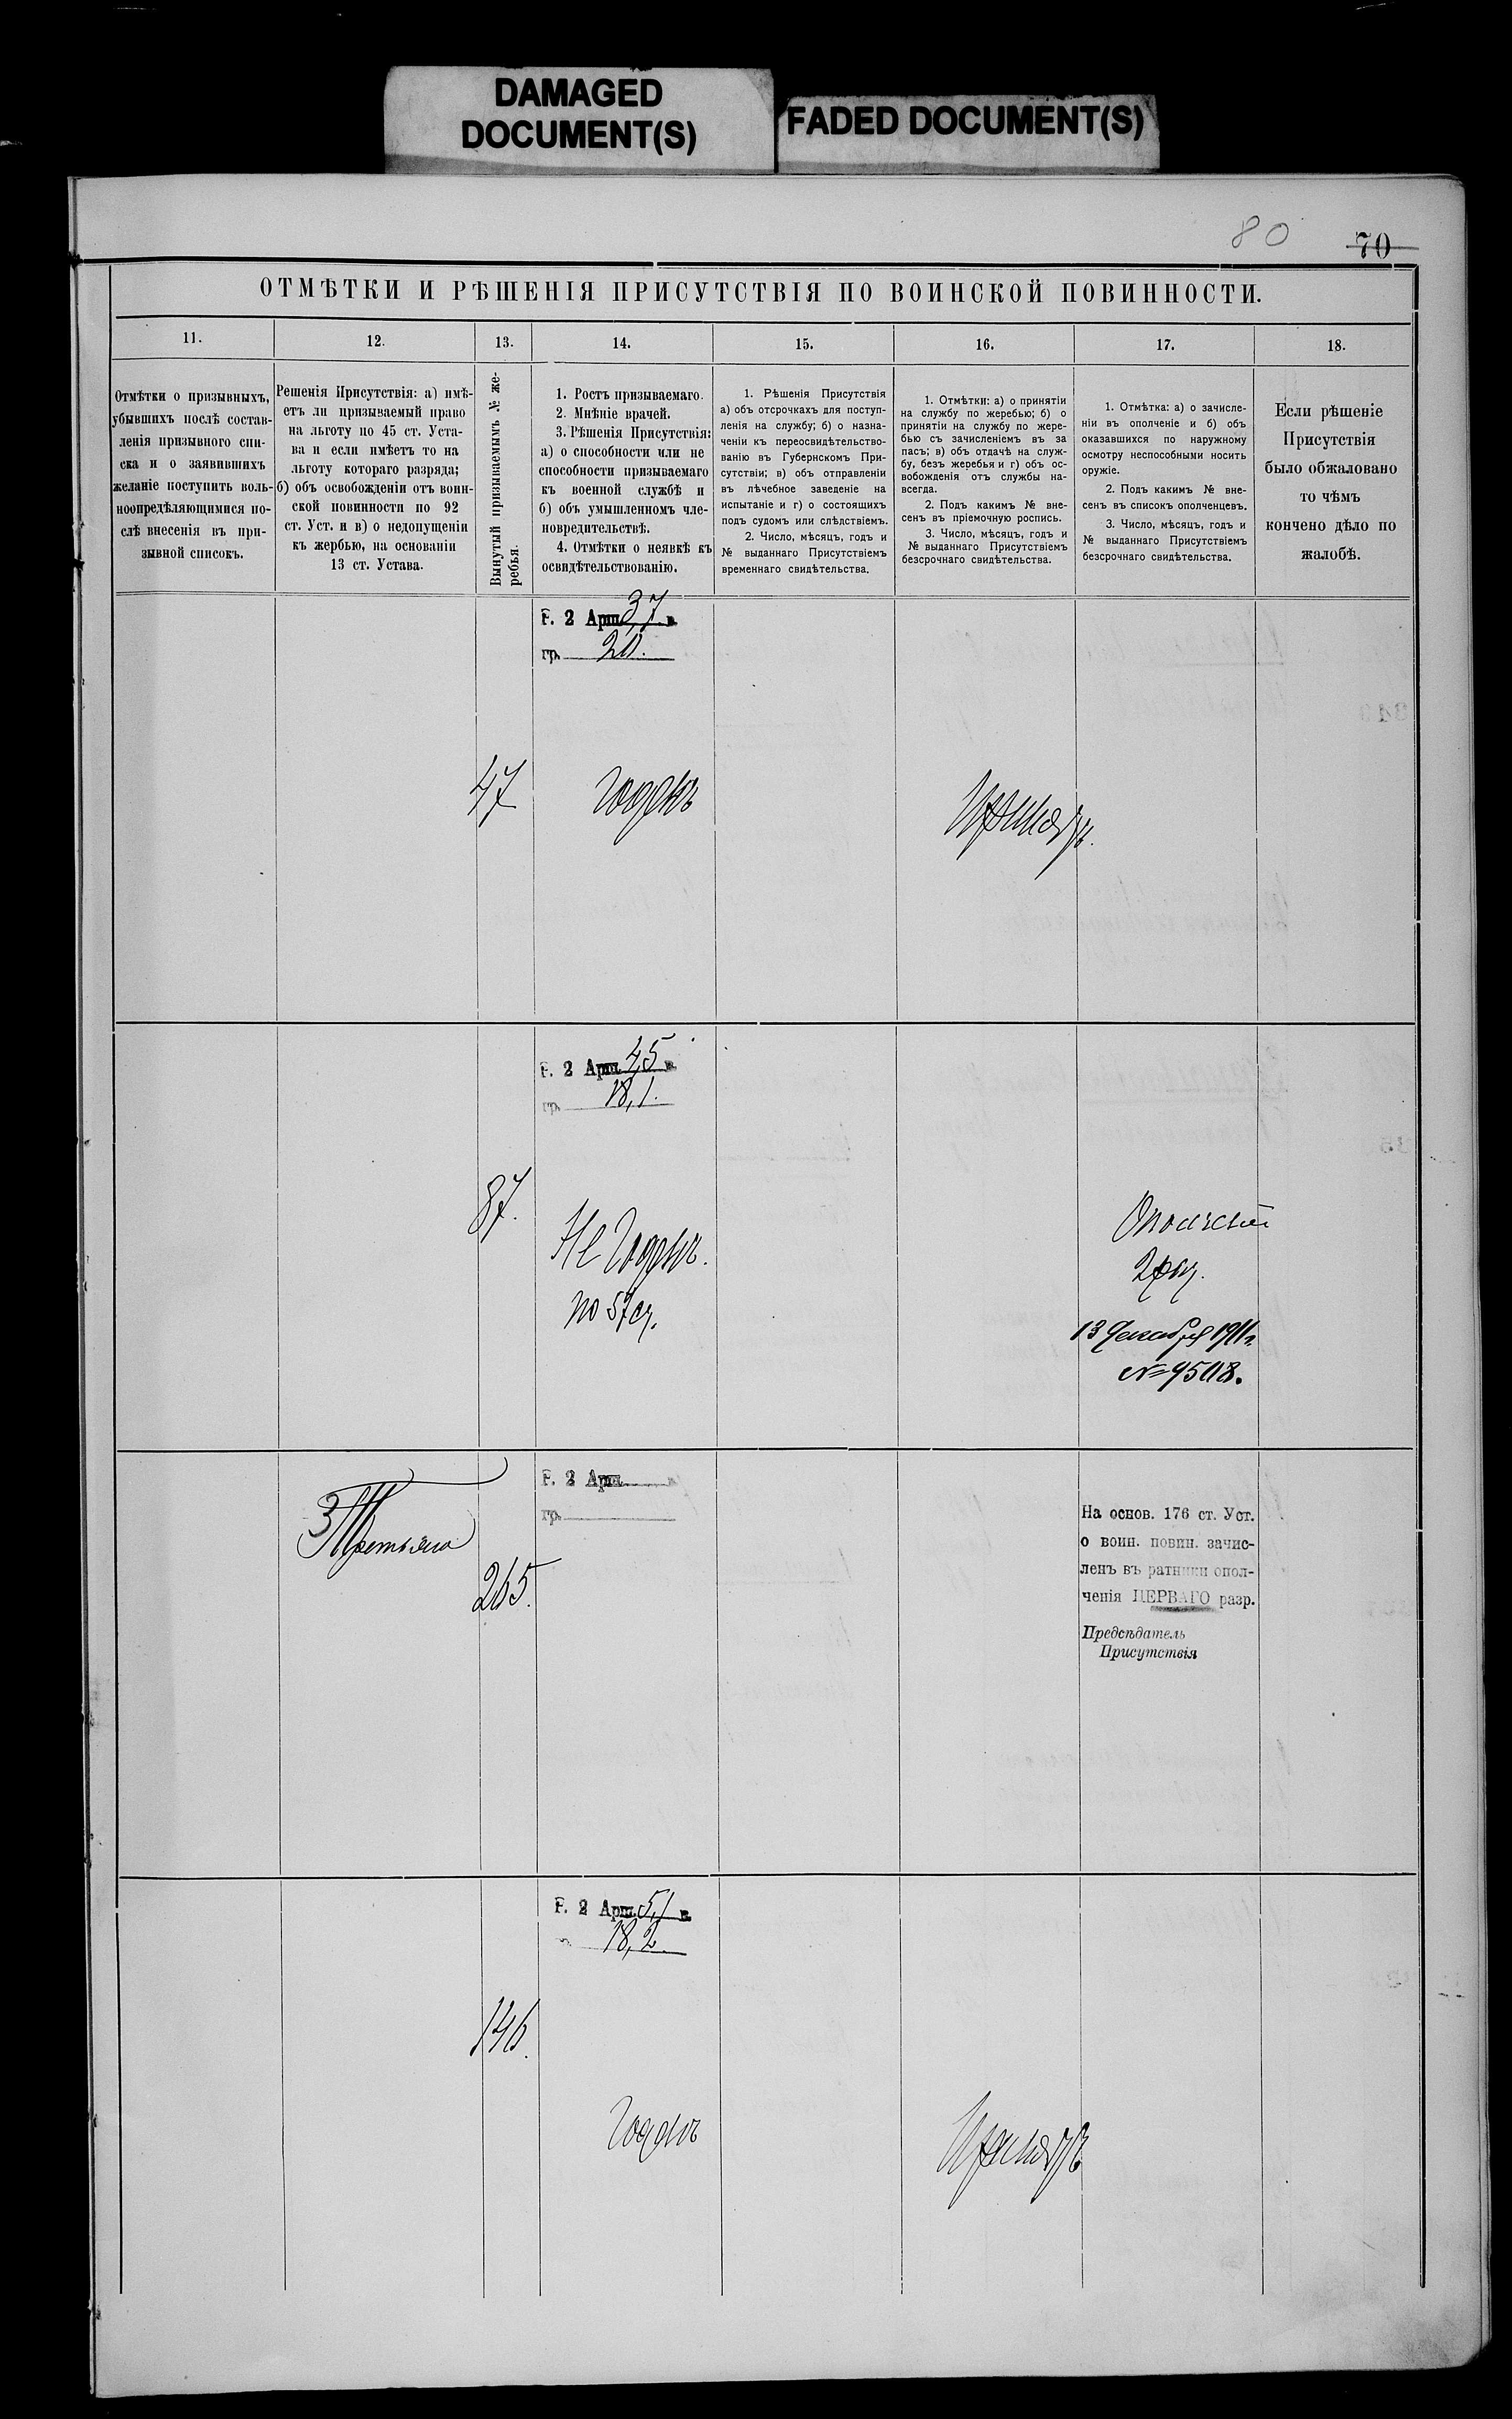 DAMAGED
DOCUMENT(S)
FADED DOCUMENT(S)
80
70
ОТМѢТКИ И РѢШЕНІЯ ПРИСУТСТВІЯ ПО ВОИНСКОЙ ПОВИННОСТИ.
11.
Отмѣтки о призывныхъ,
убывшихъ послѣ состав-
ленія призывного спи-
ска и о заявившихъ
желаніе поступить воль-
ноопредѣляющимися по-
слѣ внесенія въ при-
зывной списокъ.
12.
Решенія Присутствія: а) имѣ-
етъ ли призываемый право
на льготу по 45 ст. Уста-
ва и если имѣетъ то на
льготу котораго разряда;
б) объ освобожденіи отъ воин-
ской повинности по 92
ст. Уст. и в) о недопущеніи
къ жербью, на основаніи
13 ст. Устава.
13.
Вынутый призываемымъ № же-
ребья.
14.
1. Ростъ призываемаго.
2. Мнѣніе врачей.
3. Рѣшенія Присутствія:
а) о способности или не
способности призываемаго
къ военной службѣ и
б) объ умышленномъ чле-
новредительствѣ.
4. Отмѣтки о неявкѣ къ
освидѣтельствованію.
15.
1. Рѣшенія Присутствія
а) объ отсрочкахъ для поступ-
ленія на службу; б) о назна-
ченіи къ переосвидѣтельство-
ванію въ Губернскомъ При-
сутствіи; в) объ отправленіи
въ лѣчебное заведеніе на
испытаніе и г) о состоящихъ
подъ судомъ или слѣдствіемъ.
2. Число, мѣсяцъ, годъ и
№ выданнаго Присутствіемъ
временнаго свидѣтельства.
16.
1. Отмѣтки: а) о принятіи
на службу по жеребью; б) о
принятіи на службу по жере-
бью съ зачисленіемъ въ за
пасъ; в) объ отдачѣ на служ-
бу, безъ жеребья и г) объ ос-
вобожденія отъ службы на-
всегда.
2. Подъ какимъ № вне-
сенъ въ пріемочную роспись.
3. Число, мѣсяцъ, годъ и
№ выданнаго Присутствіемъ
безсрочнаго свидѣтельства.
17.
1. Отмѣтка: а) о зачисле-
ніи въ ополченіе и б) объ
оказавшихся по наружному
осмотру неспособными носить
оружіе.
2. Подъ какимъ № вне-
сенъ въ списокъ ополченцевъ.
3. Число, мѣсяцъ, годъ и
№ выданнаго Присутствіемъ
безсрочнаго свидѣтельства.
18.
Если рѣшеніе
Присутствія
было обжаловано
то чѣмъ
кончено дѣло по
жалобѣ.
Р. 2 Арш. 3,7 в.
гр. 20.
47
Годенъ
Принятъ.
Р. 2 Арш. 4,5 в.
гр. 18,1.
87.
Не Годенъ.
по 57 ст.
2 раз.
13 Декабря 1911 г.
№ 9508.
3 Третьяго
265.
Р. 2 Арш. в.
гр.
На основ. 176 ст. Уст.
о воин. повин. зачис-
ленъ въ ратники опол-
ченія ПЕРВАГО разр.
Предсѣдатель
Присутствія
Р. 2 Арш. 5,1 в.
18,2.
146.
Годенъ
Принятъ